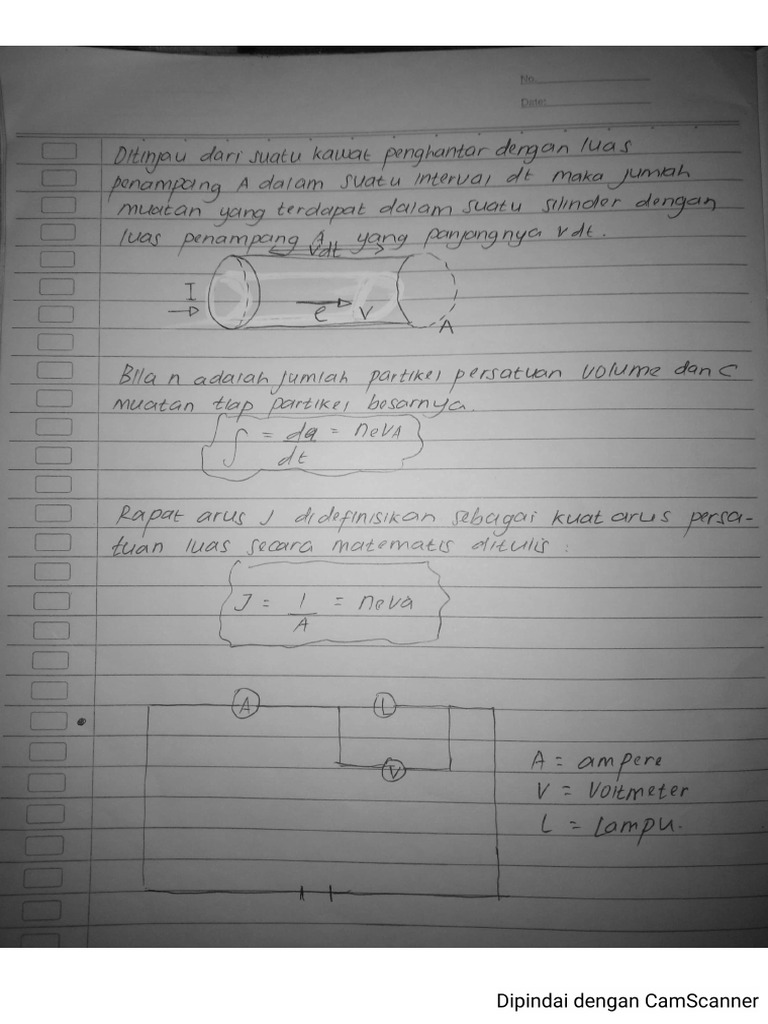 No.
Date:
Ditinjau dari suatu kawat penghantar dengan luas
penampang A dalam suatu interval dt maka jumlah
muatan yang terdapat dalam suatu silinder dengan
luas penampang A yang panjangnya vdt.
Vdt
I
e V
A
Bila n adalah jumlah partikel persatuan volume dan C
muatan tiap partikel besarnya.
∫ = dq/dt = neVA
Rapat arus J di definisikan sebagai kuat arus persa-
tuan luas secara matematis ditulis :
J = I/A = neva
A L
V
A = ampere
V = Voltmeter
L = Lampu.
Dipindai dengan CamScanner